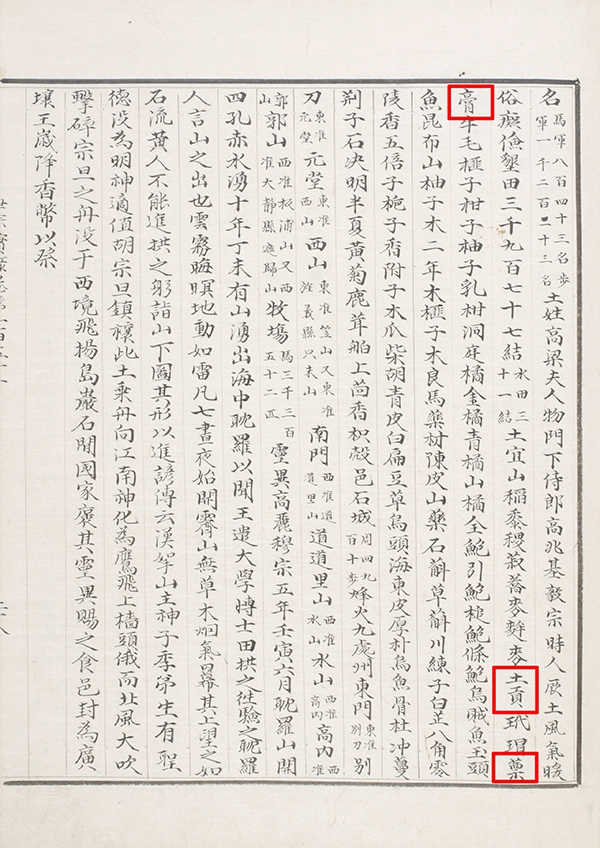 名馬軍八百四十三名步軍一千二百二十三名土姓高梁夫人物門下侍郎高兆基毅宗時人厥土風氣暖
俗癡儉墾田三千九百七十七結水田三十一結土宜山稻黍稷菽蕎麥麰麥土貢玳瑁蔈
膏牛毛榧子柑子柚子乳柑洞庭橘金橘青橘山橘全鮑引鮑槌鮑條鮑烏賊魚玉頭
魚昆布山柚子木二年木榧子木良馬藥材陳皮山藥石斛草斛川練子白芷八角零
陵香五倍子梔子香附子木瓜柴胡青皮白扁豆草烏頭海東皮厚朴烏魚骨杜冲蔓
荊子石決明半夏黃菊鹿茸舶上茴香枳殼邑石城周回九百十步烽火九處州東門東准別刀別
刀東准元堂元堂東准西山西山東准笠山又東准㫌義縣只未山南門西准道道里山道道里山西准水山水山西准高內高內西准
郭山郭山西准板浦山又西准大靜縣遮歸山牧場馬三千三百五十二匹靈異高麗穆宗五年壬寅六月耽羅山開
四孔赤水湧十年丁未有山湧出海中耽羅以聞王遣大學博士田拱之往驗之耽羅
人言山之出也雲霧晦暝地動如雷凡七晝夜始開霽山無草木烟氣羃其上望之如
石流黃人不能進拱之躬詣山下圖其形以進諺傳云漢拏山主神子季弟生有聖
德沒為明神適值胡宗旦鎮禳此土乘舟向江南神化為鷹飛上檣頭俄而北風大吹
擊碎宗旦之舟沒于西境飛揚島巖石間國家褒其靈異賜之食邑封為廣
壤王歲降香幣以祭